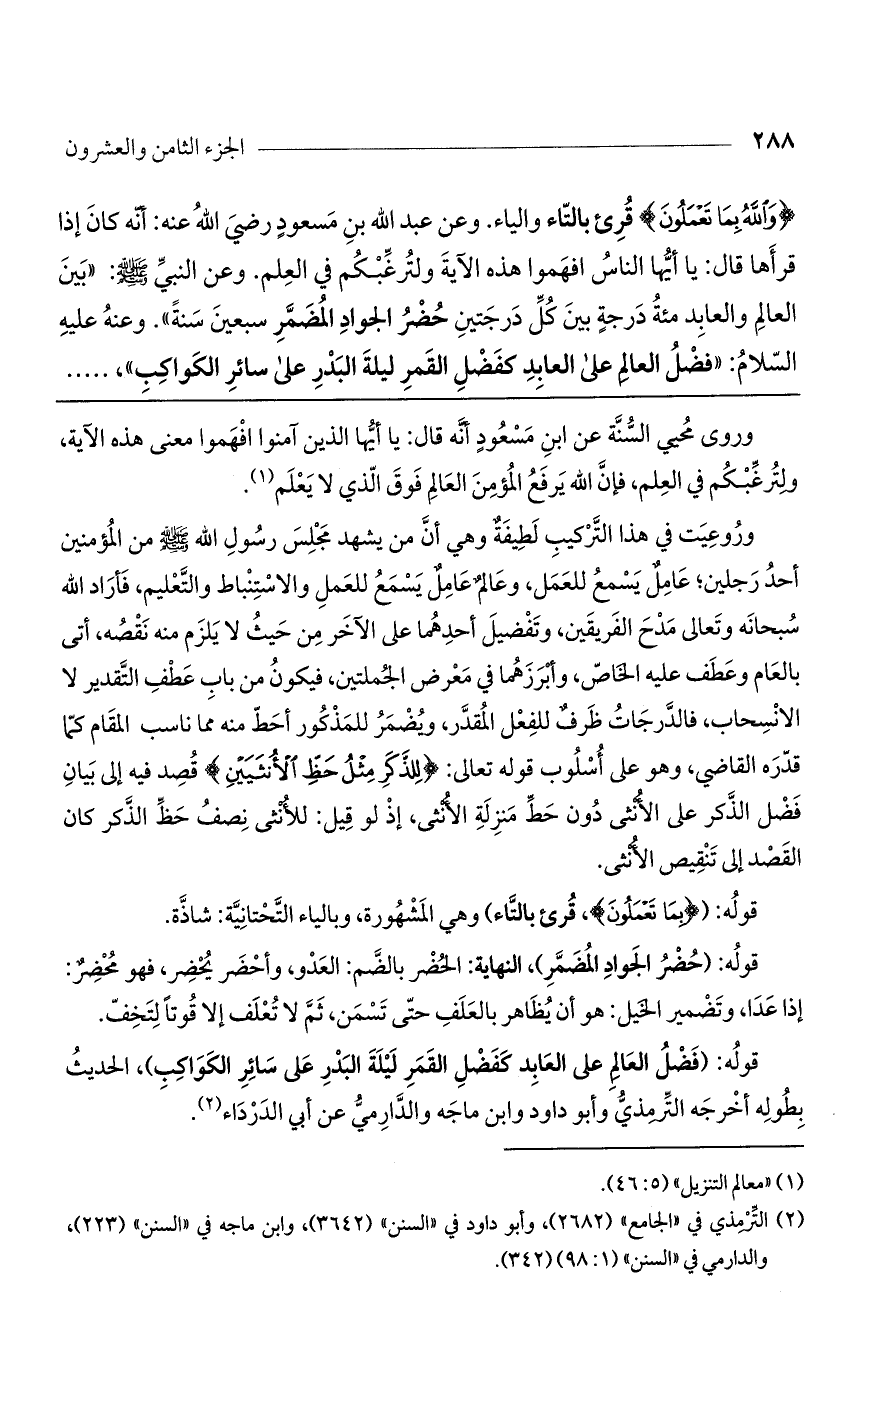 ٢٨٨ الجزء الثامن والعشرون
﴿وَٱللَّهُ بِمَا تَعْمَلُونَ﴾ قُرِئ بالتّاء والياء. وعن عبد الله بنِ مَسعودٍ رضيَ اللهُ عنه: أنّه كانَ إذا
قرأَها قال: يا أيُّها الناسُ افهَموا هذه الآيةَ ولتُرغِّبْكُم في العِلم. وعن النبيِّ ﷺ: «بَينَ
العالِمِ والعابِد مئةُ دَرجةٍ بينَ كُلِّ دَرجتَينِ حُضْرُ الجوادِ المُضَمَّرِ سبعينَ سَنةً». وعنهُ عليهِ
السّلامُ: «فضْلُ العالمِ علىٰ العابِدِ كفَضْلِ القَمرِ ليلةَ البَدْرِ علىٰ سائرِ الكَواكِبِ»، .....
وروى مُحيي السُّنَّة عن ابنِ مَسْعُودٍ أنَّه قال: يا أيُّها الذين آمنوا افْهَموا معنى هذه الآية،
ولتُرغِّبْكُم في العِلم، فإنَّ الله يَرفَعُ المُؤمِنَ العَالِم فَوقَ الّذي لا يَعْلَم(١).
ورُوعِيَت في هذا التَّركيبِ لَطِيفَةٌ وهي أنَّ من يشهد مَجْلِسَ رسُولِ الله ﷺ من المُؤمنين
أحدُ رَجلين؛ عَامِلٌ يَسْمعُ للعَمَل، وعَالمٌ عَامِلٌ يَسْمَعُ للعملِ والاسْتِنْباط والتَّعْليم، فَأرَاد الله
سُبحانَه وتَعالى مَدْحَ الفَريقَين، وتَفْضيلَ أحدِهُما على الآخَر مِن حَيثُ لا يَلزَم منه نَقْصُه، أتى
بالعَام وعَطَف عليه الخَاصّ، وأبْرَزَهُما في مَعْرض الجُملتين، فيكونُ من بابِ عَطْفِ التَّقدير لا
الانْسِحاب، فالدَّرجَاتُ ظَرفٌ للفِعْل المُقدَّر، ويُضْمَرُ للمَذْكُور أحَطّ منه مما ناسب المقَام كمَا
قدّرَه القاضي، وهو على أُسْلُوب قوله تعالى: ﴿لِلذَّكَرِ مِثْلُ حَظِّ ٱلْأُنثَيَيْنِ﴾ قُصِد فيه إلى بَيانِ
فَضْل الذَّكر على الأُنْثى دُون حَطِّ مَنزِلَةِ الأُنْثى، إذْ لو قِيل: للأُنْثى نِصفُ حَظِّ الذَّكر كان
القَصْد إلى تَنْقِيص الأُنْثى.
قولُه: (﴿بِمَا تَعْمَلُونَ﴾، قُرئ بالتَّاء) وهي المَشْهُورة، وبالياء التَّحْتانِيَّة: شاذَّة.
قولُه: (حُضْرُ الجَوادِ المُضَمَّرِ)، النهاية: الحُضْر بالضَّم: العَدْو، وأحْضَر يُحْضِر، فهو مُحْضِرٌ:
إذا عَدَا، وتَضْمير الخَيل: هو أن يُظَاهر بالعَلَفِ حتّى تَسْمَن، ثَمَّ لا تُعْلَف إلا قُوتاً لِتَخِفّ.
قولُه: (فَضْلُ العَالمِ على العَابِد كَفَضْلِ القَمَرِ لَيْلَةَ البَدْرِ عَلى سَائِرِ الكَوَاكِبِ)، الحديثُ
بِطُولِه أخْرجَه التِّرمِذيُّ وأبو داود وابن ماجَه والدَّارِميُّ عن أبي الدَرْدَاء(٢).
(١) «معالم التنزيل» (٥: ٤٦).
(٢) التِّرْمِذي في «الجامع» (٢٦٨٢)، وأبو داود في «السنن» (٣٦٤٢)، وابن ماجه في «السنن» (٢٢٣)،
والدارمي في «السنن» (١: ٩٨) (٣٤٢).